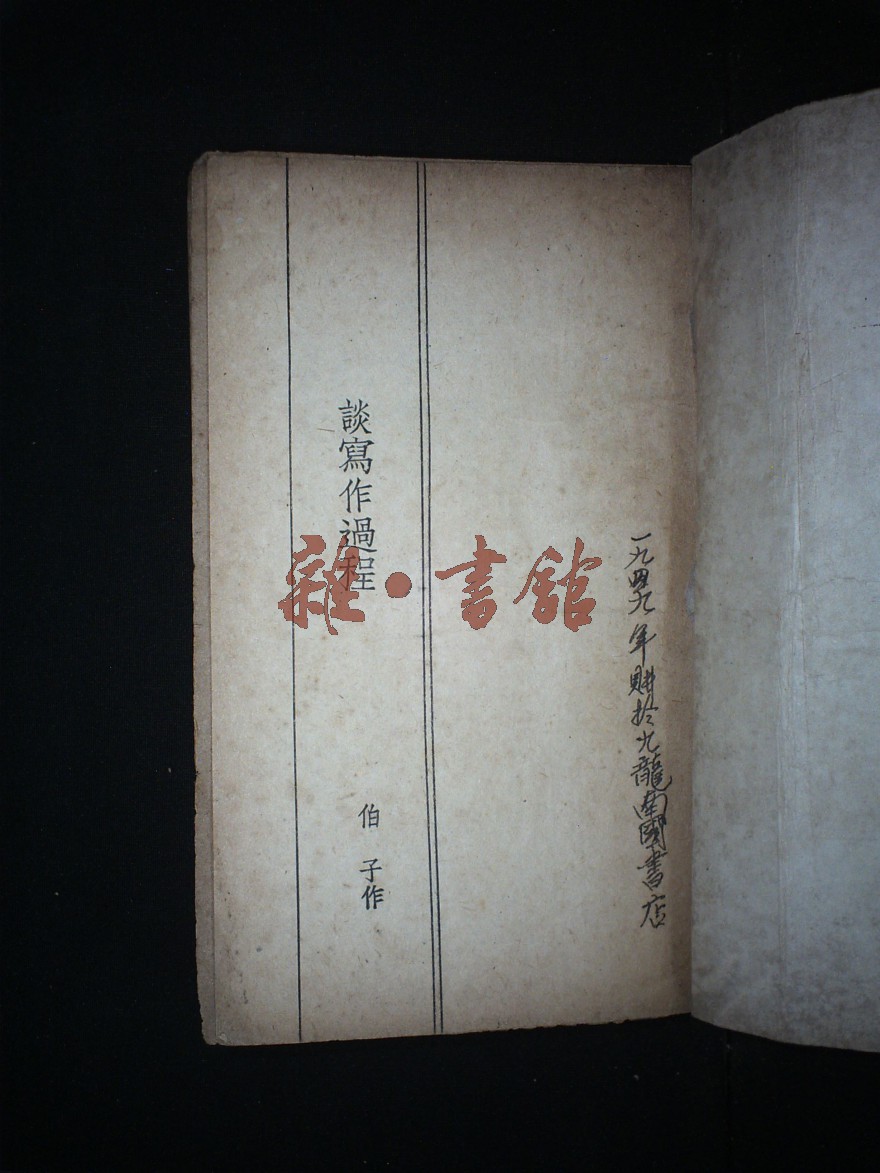 一九四九年購於九龍南國書店
談寫作過程
伯子作
雜·書館